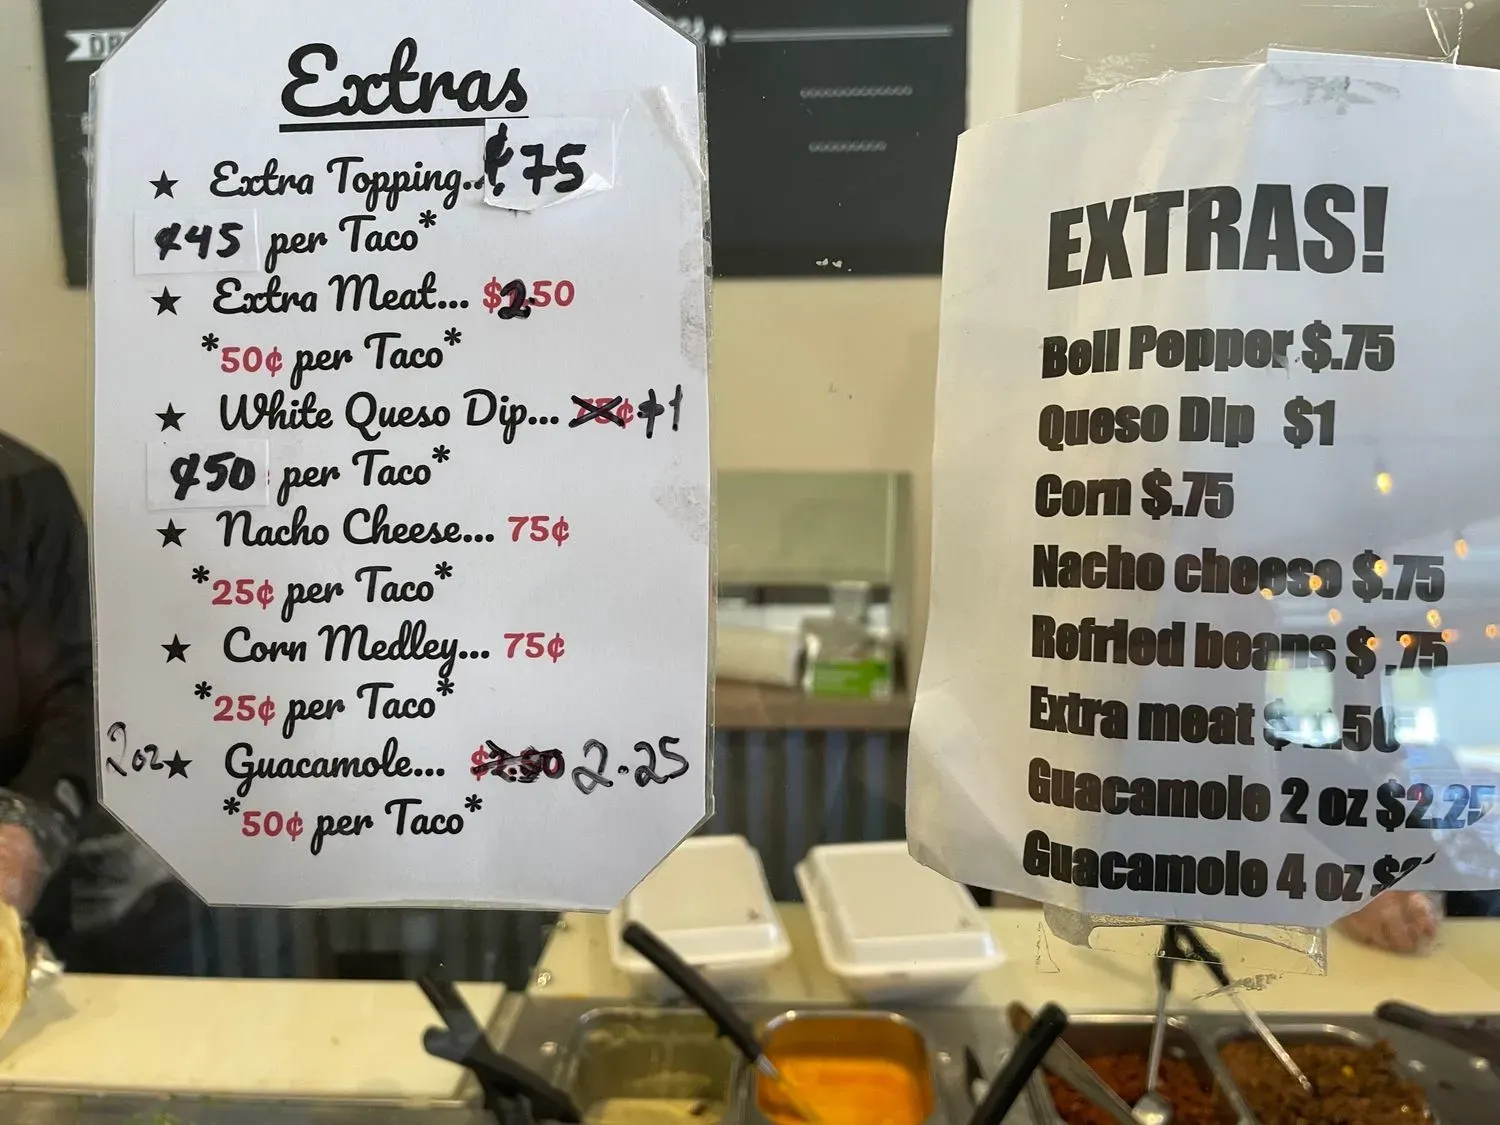 Extras
★ Extra Topping.. ¢.75
¢45 per Taco*
★ Extra Meat... $2.50
*50¢ per Taco*
★ White Queso Dip... 75¢ $1
¢50 per Taco*
★ Nacho Cheese... 75¢
*25¢ per Taco*
★ Corn Medley... 75¢
*25¢ per Taco*
2oz ★ Guacamole... 2.25
*50¢ per Taco*
EXTRAS!
Bell Pepper $.75
Queso Dip $1
Corn $.75
Nacho cheese $.75
Refried beans $.75
Extra meat
Guacamole 2 oz $2.25
Guacamole 4 oz